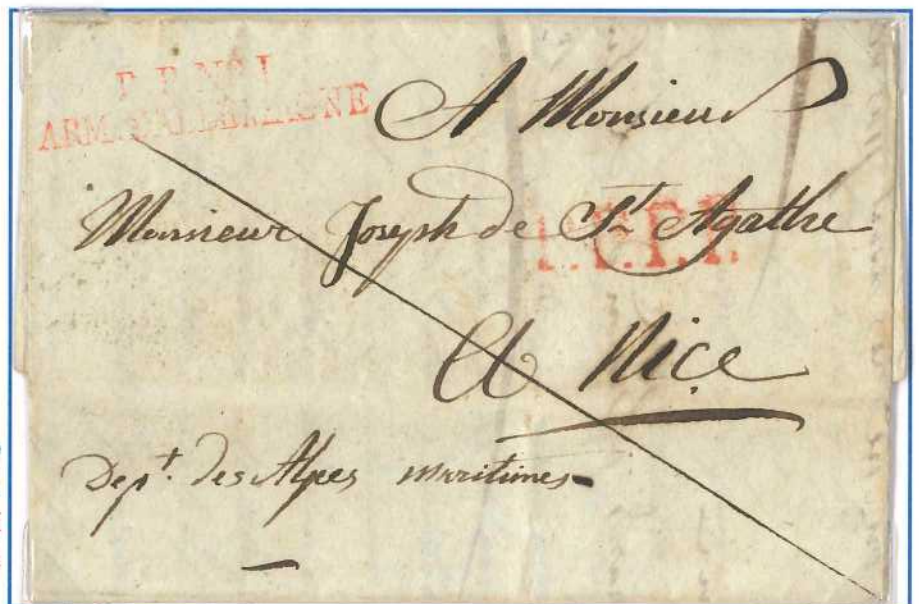 P. P. No. 1
ARM. D'ALLEMAGNE
A Monsieur
Monsieur Joseph de St. Agathe
A Nice
Dept. des Alpes maritimes